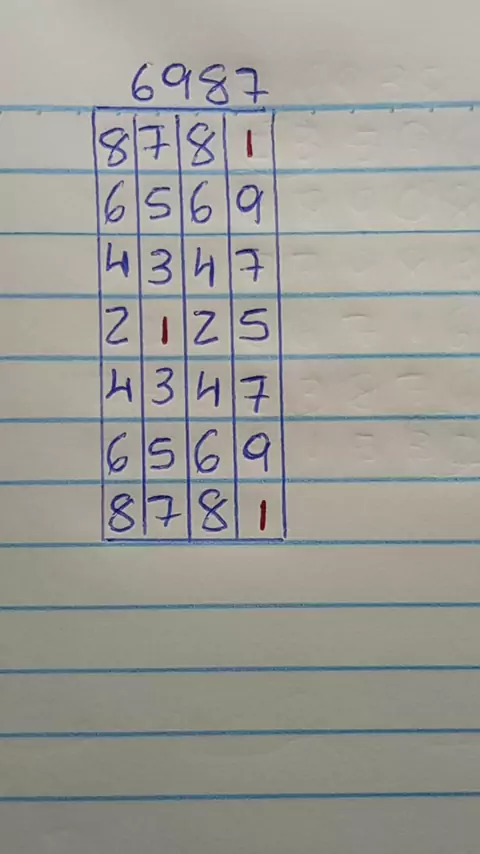 6987
8 7 8 1
6 5 6 9
4 3 4 7
2 1 2 5
4 3 4 7
6 5 6 9
8 7 8 1